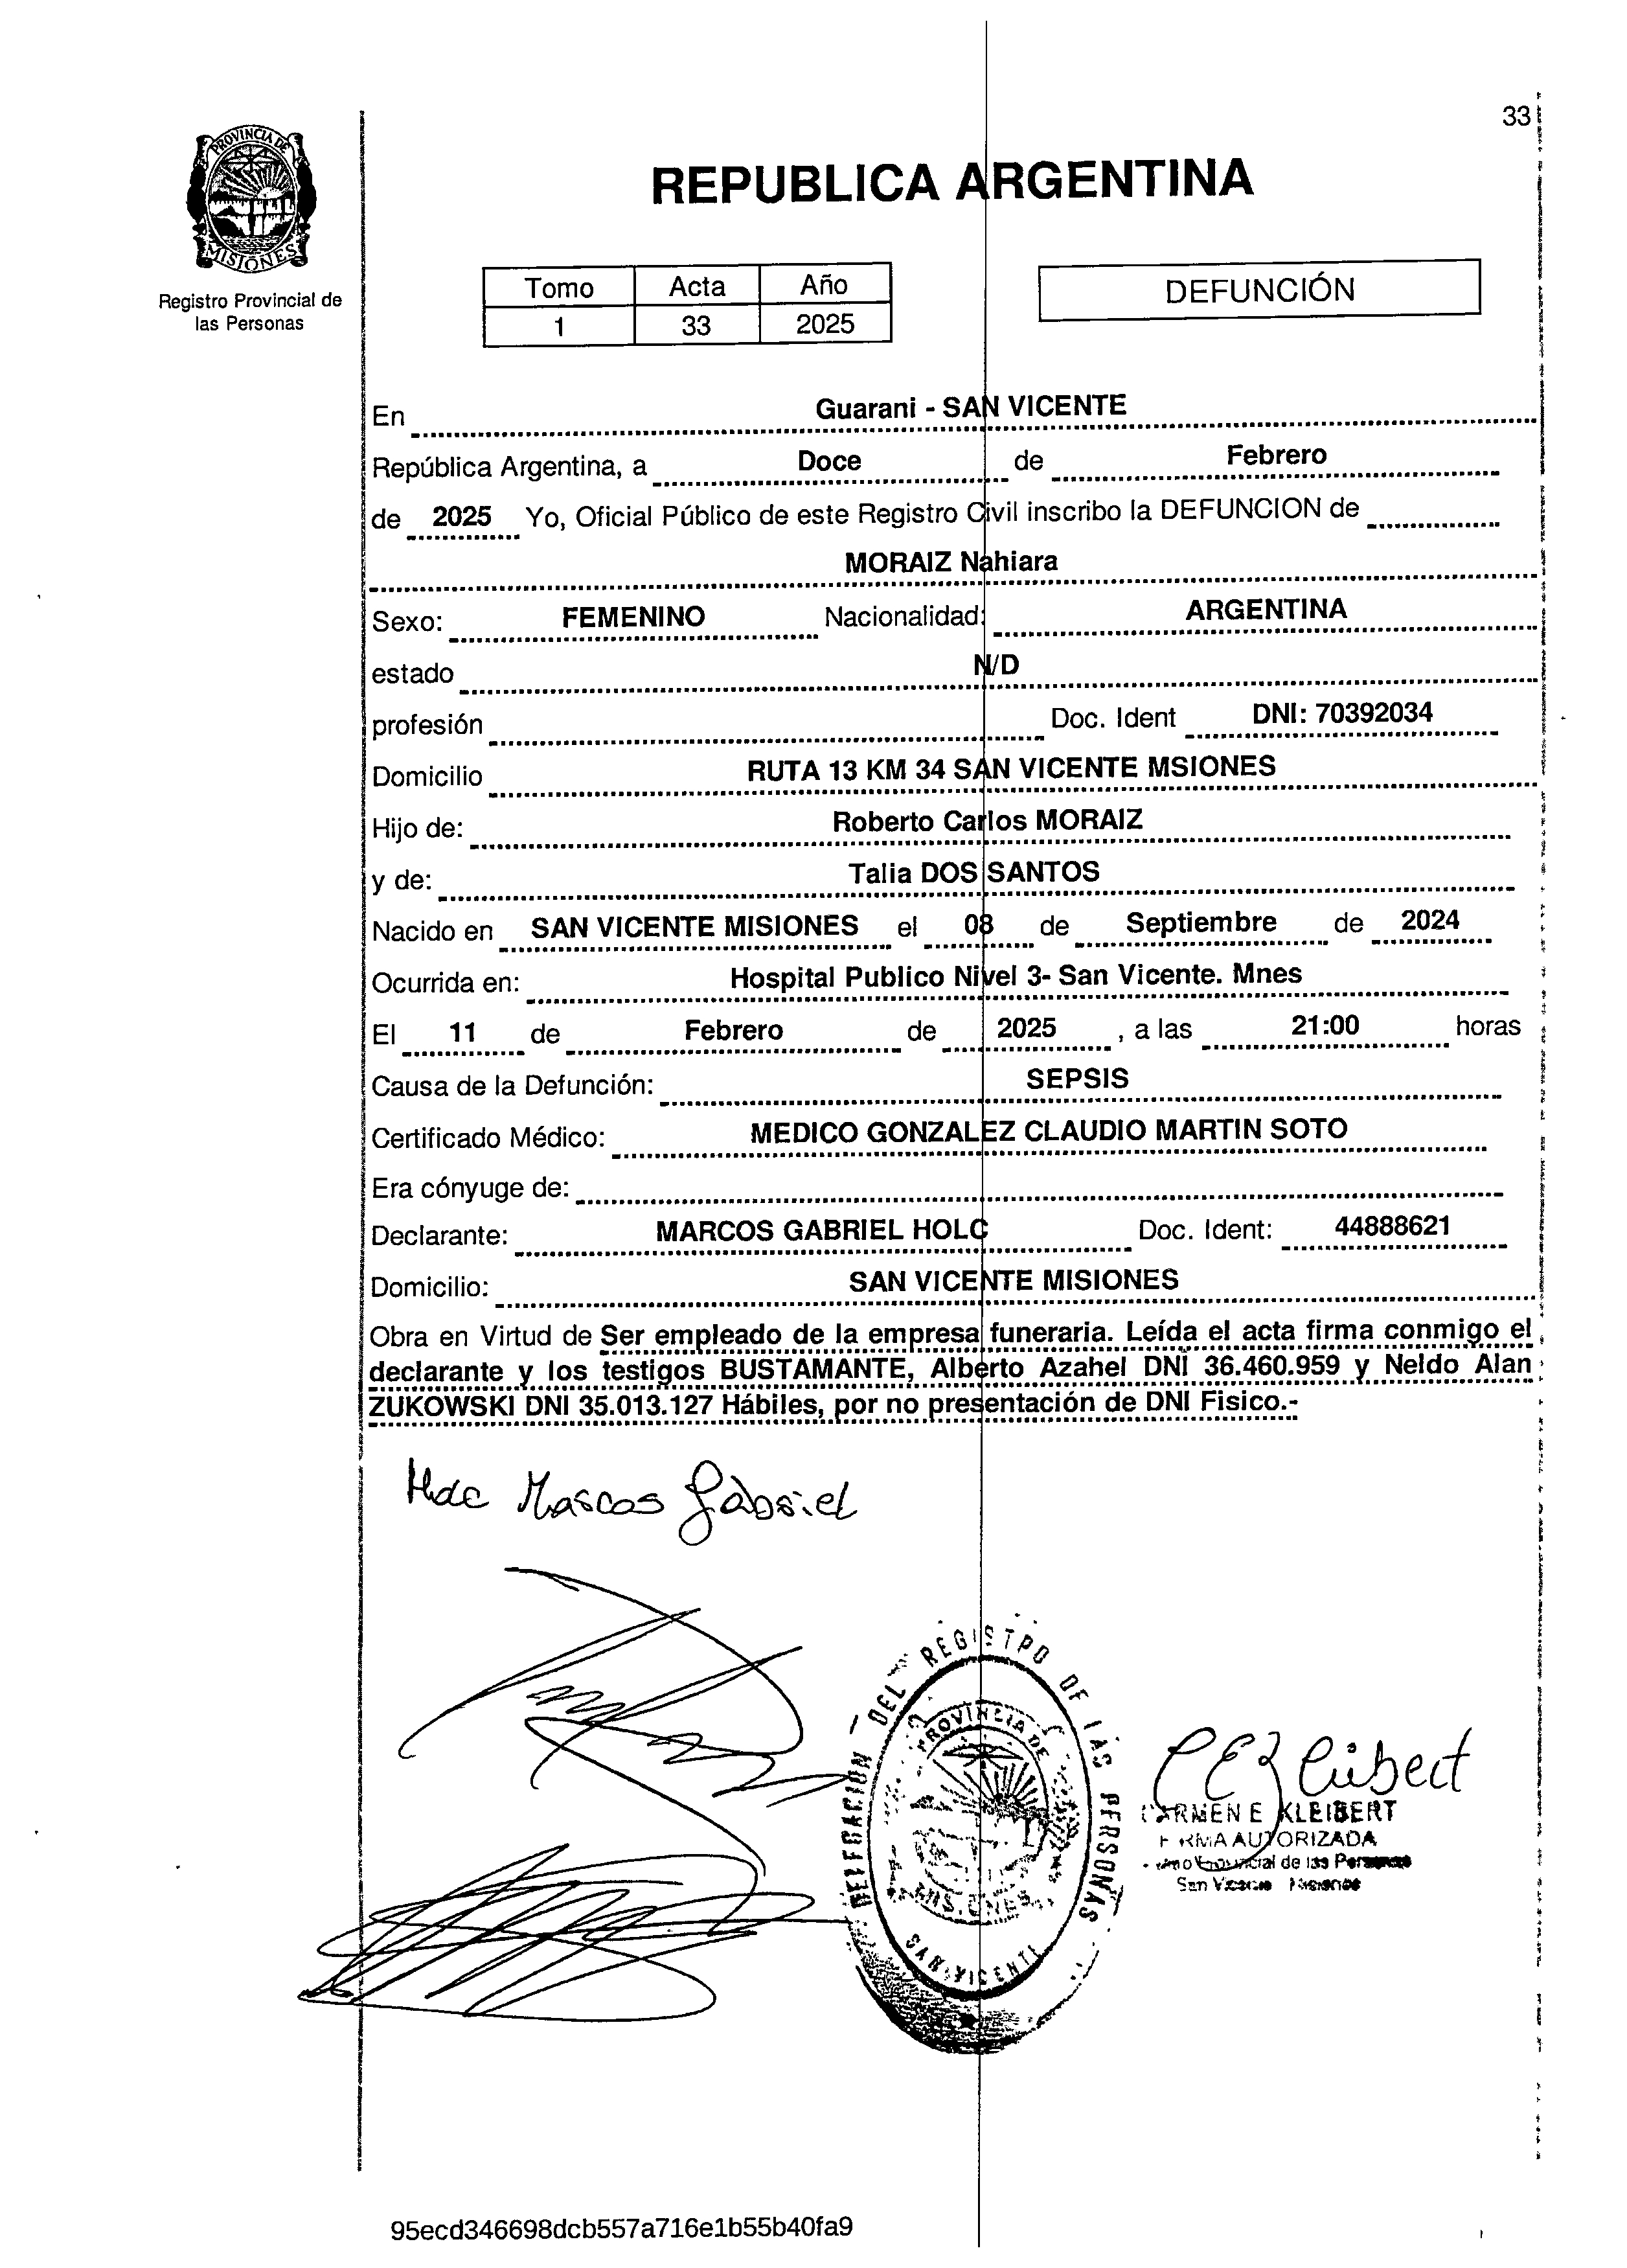 33
PROVINCIA DE
MISIONES
Registro Provincial de
las Personas
REPUBLICA ARGENTINA
Tomo Acta Año
1 33 2025
DEFUNCIÓN
En Guarani - SAN VICENTE
República Argentina, a Doce de Febrero
de 2025 Yo, Oficial Público de este Registro Civil inscribo la DEFUNCION de
MORAIZ Nahiara
Sexo: FEMENINO Nacionalidad: ARGENTINA
estado N/D
profesión Doc. Ident DNI: 70392034
Domicilio RUTA 13 KM 34 SAN VICENTE MSIONES
Hijo de: Roberto Carlos MORAIZ
y de: Talia DOS SANTOS
Nacido en SAN VICENTE MISIONES el 08 de Septiembre de 2024
Ocurrida en: Hospital Publico Nivel 3- San Vicente. Mnes
El 11 de Febrero de 2025 , a las 21:00 horas
Causa de la Defunción: SEPSIS
Certificado Médico: MEDICO GONZALEZ CLAUDIO MARTIN SOTO
Era cónyuge de:
Declarante: MARCOS GABRIEL HOLC Doc. Ident: 44888621
Domicilio: SAN VICENTE MISIONES
Obra en Virtud de Ser empleado de la empresa funeraria. Leída el acta firma conmigo el
declarante y los testigos BUSTAMANTE, Alberto Azahel DNI 36.460.959 y Neldo Alan
ZUKOWSKI DNI 35.013.127 Hábiles, por no presentación de DNI Fisico.-
Marcos Gabriel
DELEGACION DEL REGISTRO DE LAS PERSONAS
PROVINCIA DE
MISIONES
SAN VICENTE
CARMEN E KLEIBERT
FIRMA AUTORIZADA
Provincial de las Personas
San Vicente Misiones
95ecd346698dcb557a716e1b55b40fa9